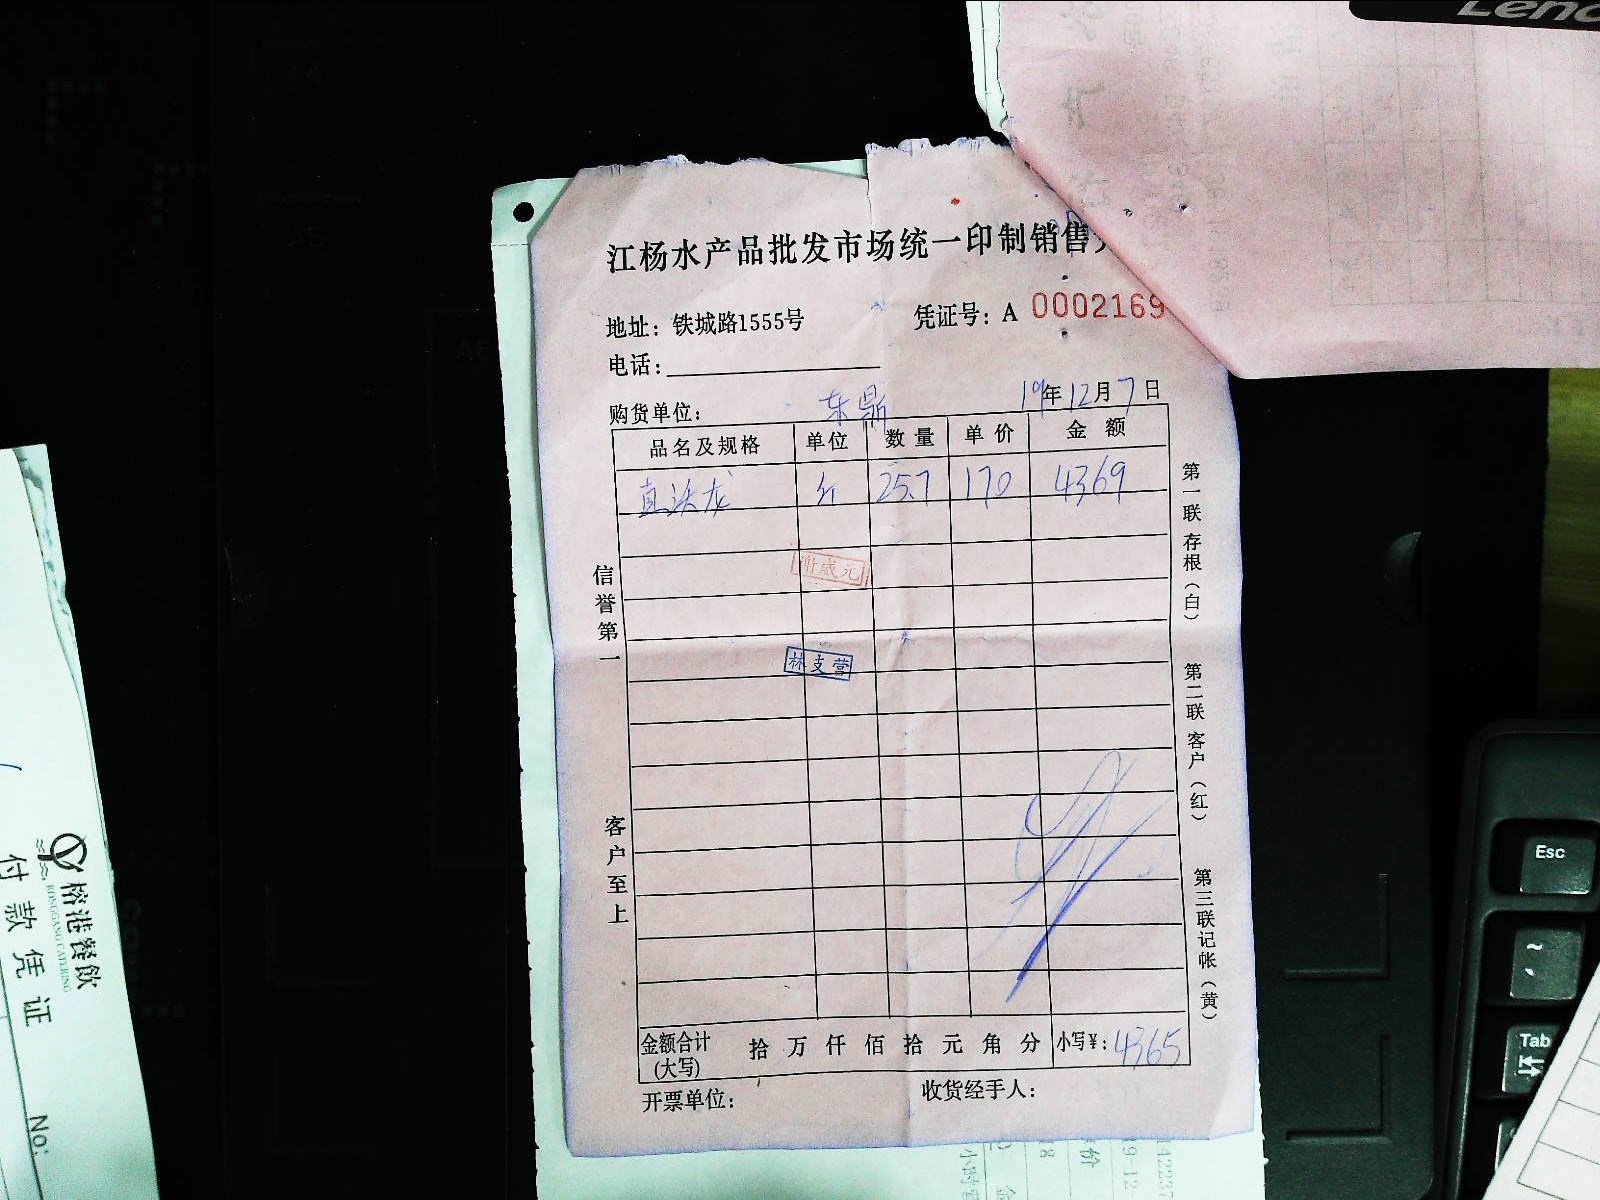 Leno
江杨水产品批发市场统一印制销售
地址：铁城路1555号
凭证号：A 0002169
电话：
购货单位：东鼎
19年12月7日
品名及规格 单位 数量 单价 金额
直法龙 斤 25.7 170 4369
谢成元
林支营
信誉第一
客户至上
第一联存根（白）
第二联客户（红）
第三联记帐（黄）
金额合计(大写) 拾万仟佰拾元角分 小写¥：4365
开票单位：
收货经手人：
榕港餐飲
RONGGANG CATERING
付款凭证
No:
Esc
Tab